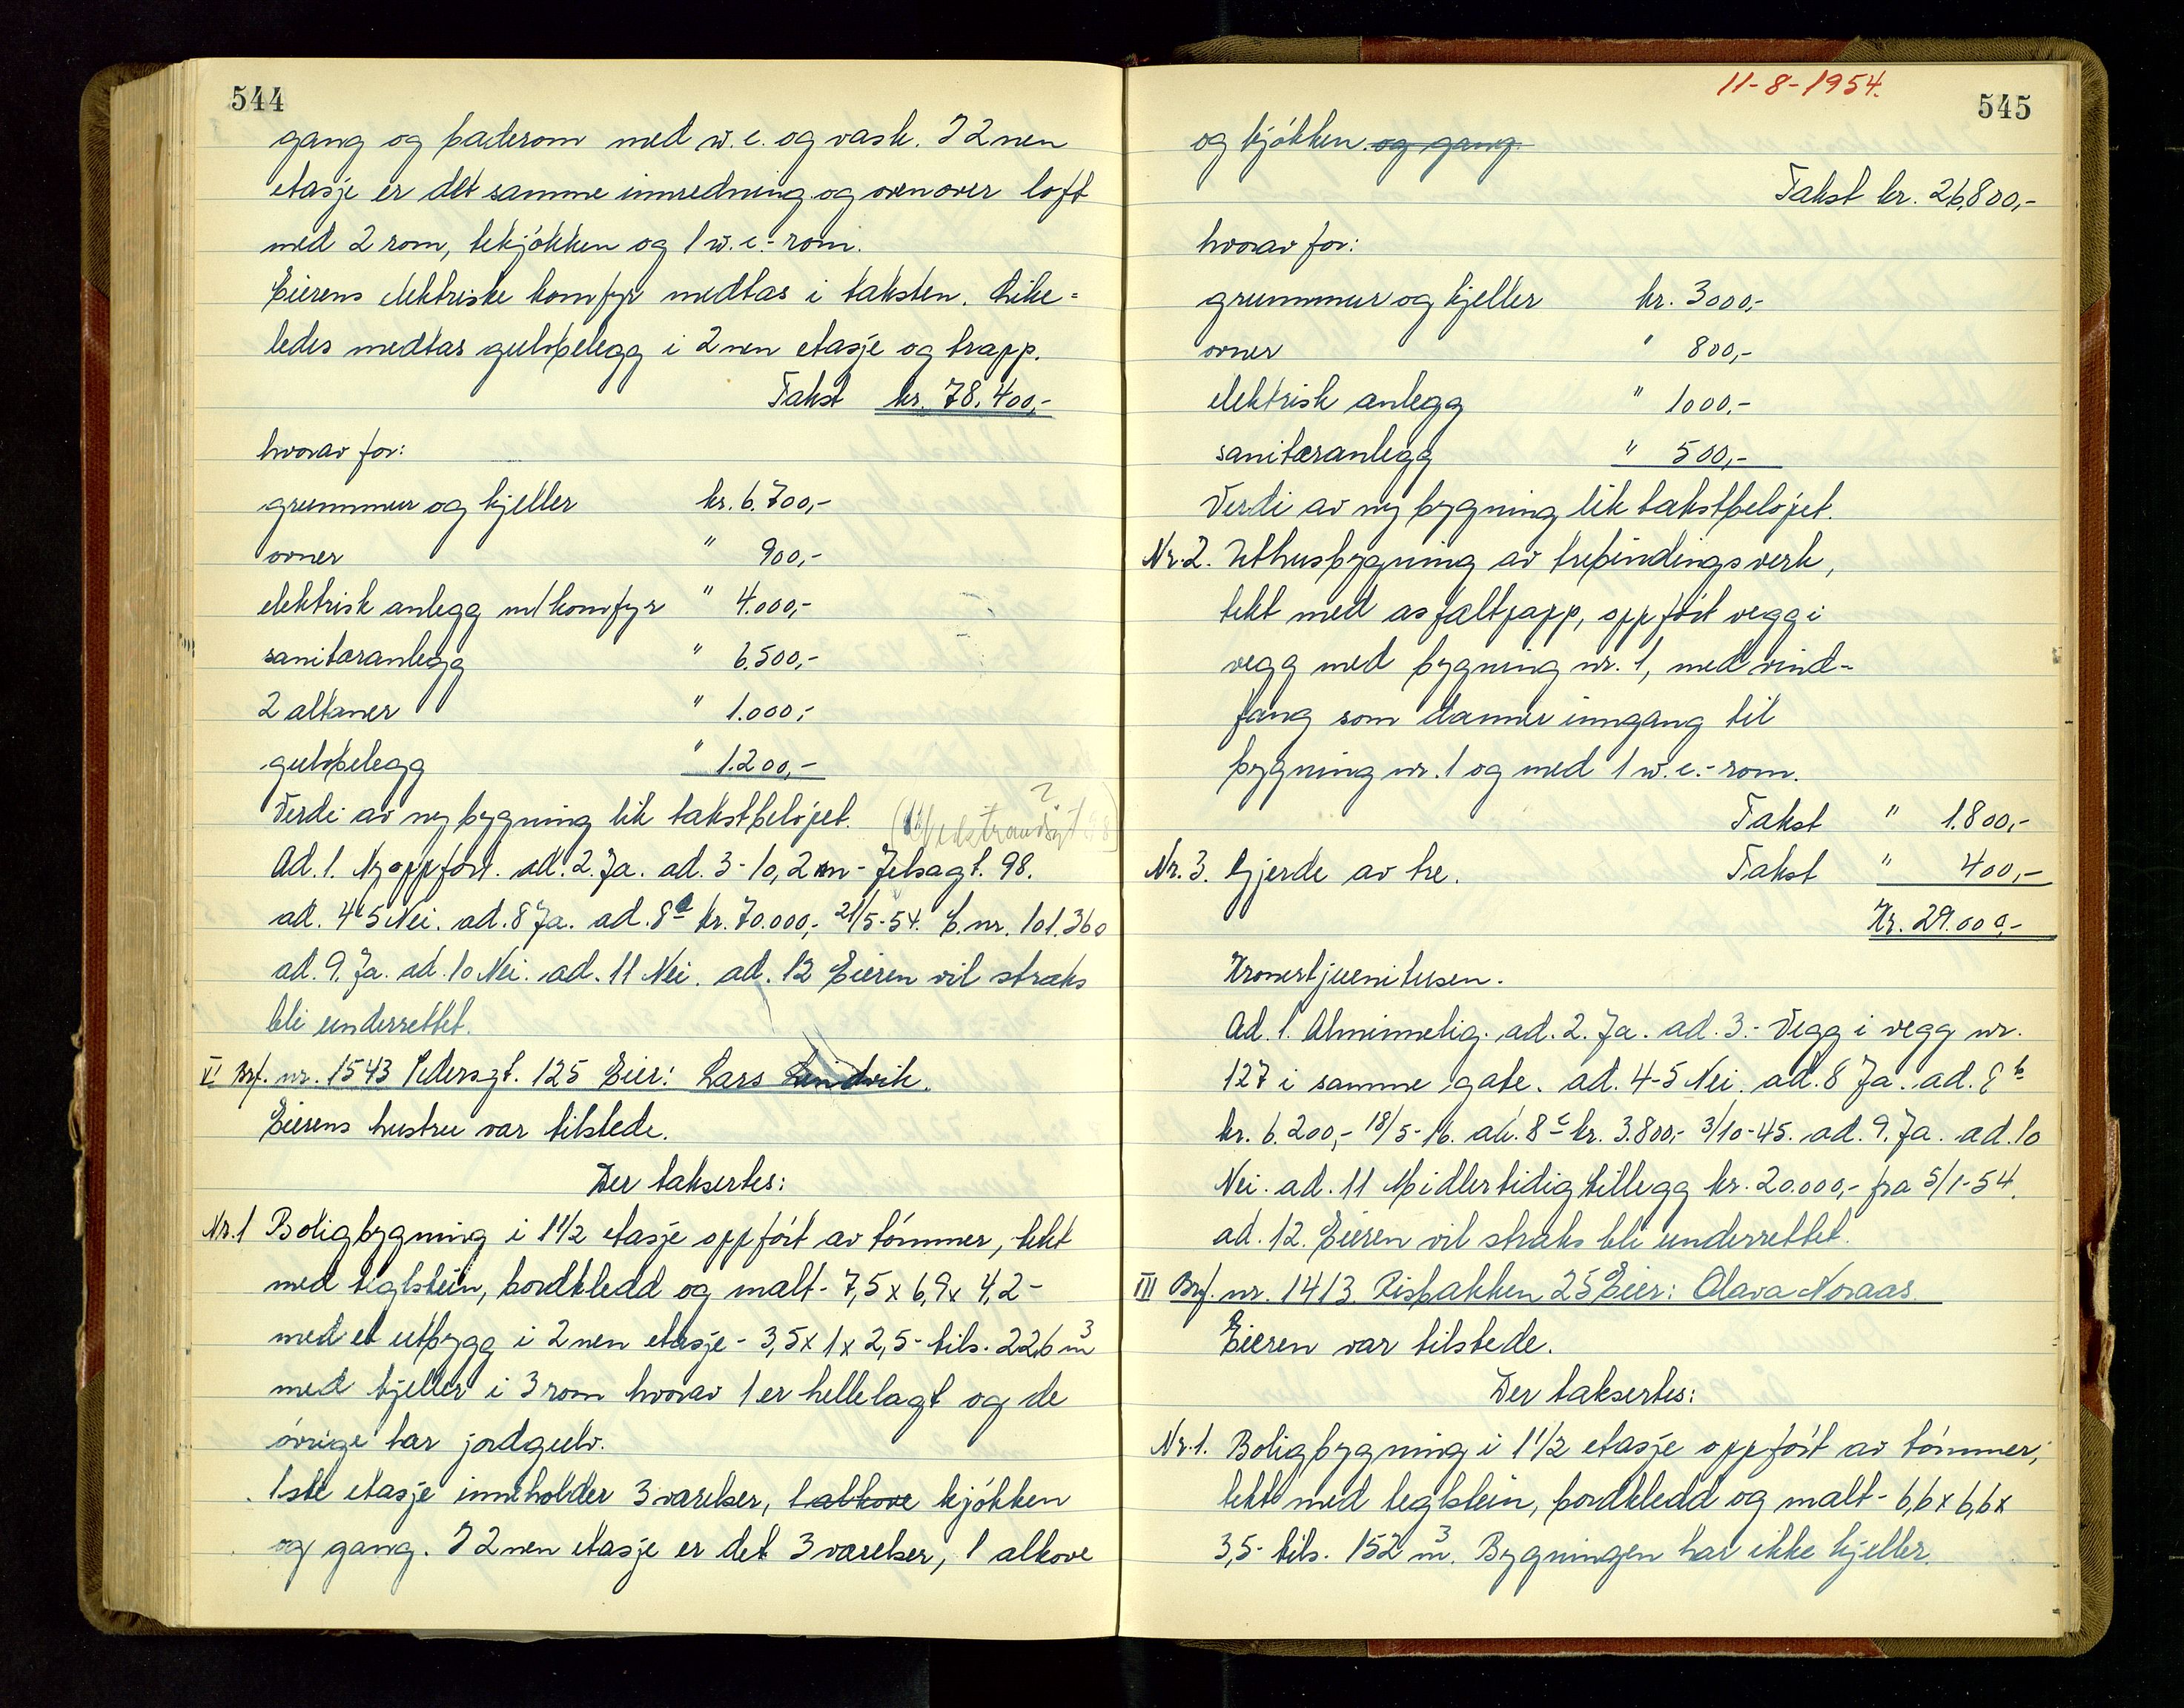 544
gang og baderom med w.c. og vask. I 2nen
etasje er det samme innredning og ovenover loft
med 2 rom, tekjøkken og 1 w.c.-rom.
Eierens elektriske komfyr medtas i taksten. Like=
ledes medtas gulvbelegg i 2nen etasje og trapp.
Takst kr. 78.400,-
hvorav for:
grunnmur og kjeller kr. 6.700,-
ovner " 900,-
elektrisk anlegg m/komfyr " 4.000,-
sanitæranlegg " 6.500,-
2 altaner " 1.000,-
gulvbelegg " 1.200,-
Verdi av ny bygning lik takstbeløpet.
Ad. 1. Nyoppført. ad. 2. Ja. ad. 3 - 10,2 m - Jelsagt. 98.
ad. 4-5 Nei. ad. 8 Ja. ad. 8a kr. 70.000,- 21/5-54. B.nr. 101.360
ad. 9. Ja. ad. 10 Nei. ad. 11 Nei. ad. 12 Eieren vil straks
bli underrettet.
V. Brf. nr. 1543 Pedersgt. 125 Eier: Lars Lindvik.
Eierens hustru var tilstede.
Der taksertes:
Nr. 1 Boligbygning i 1 1/2 etasje oppført av tømmer, tekt
med teglstein, bordkledd og malt - 7,5 x 6,9 x 4,2 -
med et utbygg i 2nen etasje - 3,5 x 1 x 2,5 - tils. 226 m3
med kjeller i 3 rom hvorav 1 er hellelagt og de
øvrige har jordgulv.
1ste etasje inneholder 3 værelser, 1 alkove kjøkken
og gang. I 2nen etasje er det 3 værelser, 1 alkove
11-8-1954.
545
og kjøkken og gang.
Takst kr. 26.800,-
hvorav for:
grunnmur og kjeller kr. 3000,-
ovner " 800,-
elektrisk anlegg " 1000,-
sanitæranlegg " 500,-
Verdi av ny bygning lik takstbeløpet.
Nr. 2. Uthusbygning av trebindingsverk,
tekt med asfaltpapp, oppført vegg i
vegg med bygning nr. 1, med vind-
fang som danner inngang til
bygning nr. 1 og med 1 w.c.-rom.
Takst " 1.800,-
Nr. 3. Gjerde av tre. Takst " 400,-
Kr. 29.000,-
Kronertjuenitusen.
Ad. 1. Alminnelig. ad. 2. Ja. ad. 3. - Vegg i vegg nr.
127 i samme gate. ad. 4-5 Nei. ad. 8 Ja. ad. 8b
kr. 6.200,- 18/5-16. ad. 8c kr. 3.800,- 3/10-45. ad. 9. Ja. ad. 10
Nei. ad. 11 Midlertidig tillegg kr. 20.000,- fra 5/1-54.
ad. 12. Eieren vil straks bli underrettet.
III Brf. nr. 1413. Risbakken 25 Eier: Olava Noraas.
Eieren var tilstede.
Der taksertes:
Nr. 1. Boligbygning i 1 1/2 etasje oppført av tømmer,
tekt med teglstein, bordkledd og malt - 6,6 x 6,6 x
3,5 - tils. 152 m3. Bygningen har ikke kjeller.